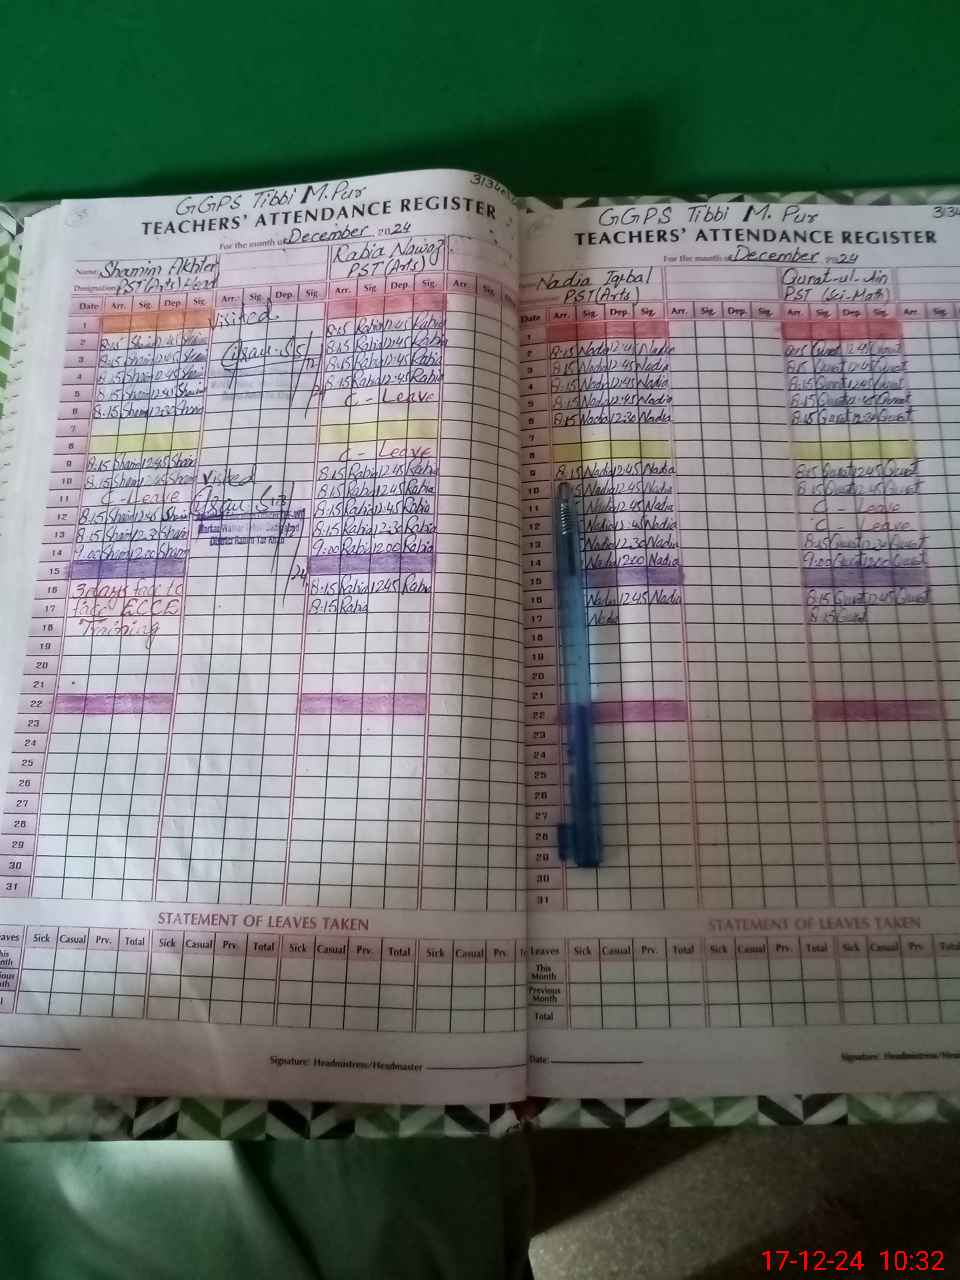 GGPS Tibbi M.Pur
TEACHERS' ATTENDANCE REGISTER
For the month of December 2024
Name Shamim Akhter
Rabia Nawaz
Designation PST(Arts) Head
PST(Arts)
Date Arr. Sig. Dep. Sig. Arr. Sig. Dep. Sig. Arr. Sig. Dep. Sig. Arr. Sig.
1 Visited
2 8:15 12:45 8:15 Rabia 12:45 Rabia
3 8:15 Sham 12:45 8:15 Rabia 12:45 Rabia
4 8:15 Sham 12:45 8:15 Rabia 12:45 Rabia
5 8:15 Sham 12:45 8:15 Rabia 12:45 Rabia
6 8:15 Sham 12:30 Sham C - Leave
7
8
9 8:15 Sham 12:45 Sham C - Leave
10 8:15 Sham 12:45 Sham Visited 8:15 Rabia 12:45 Rabia
11 C - Leave 8:15 Rabia 12:45 Rabia
12 8:15 Sham 12:45 Sham 8:15 Rabia 12:45 Rabia
13 8:15 Sham 12:30 Sham 8:15 Rabia 12:30 Rabia
14 9:00 Sham 12:00 Sham 9:00 Rabia 12:00 Rabia
15
16 3 days face to 8:15 Rabia 12:45 Rabia
17 face ECCE 8:15 Rabia
18 Training
19
20
21
22
23
24
25
26
27
28
29
30
31
STATEMENT OF LEAVES TAKEN
Sick Casual Prv. Total Sick Casual Prv. Total Sick Casual Prv. Total Sick Casual Prv.
Signature: Headmistress/Headmaster
GGPS Tibbi M. Pur
TEACHERS' ATTENDANCE REGISTER
For the month of December 2024
Nadia Iqbal
Qurat-ul-Ain
PST(Arts)
PST (Sci-Math)
Date Arr. Sig. Dep. Sig. Arr. Sig. Dep. Sig. Arr. Sig. Dep. Sig. Arr. Sig.
1
2 8:15 Nadia 12:45 Nadia 8:15 Qurat 12:45 Qurat
3 8:15 Nadia 12:45 Nadia 8:15 Qurat 12:45 Qurat
4 8:15 Nadia 12:45 Nadia 8:15 Qurat 12:45 Qurat
5 8:15 Nadia 12:45 Nadia 8:15 Qurat 12:45 Qurat
6 8:15 Nadia 12:30 Nadia 8:15 Qurat 12:30 Qurat
7
8
9 8:15 Nadia 12:45 Nadia 8:15 Qurat 12:45 Qurat
10 Nadia 12:45 Nadia 8:15 Qurat 12:45 Qurat
11 Nadia 12:45 Nadia C - Leave
12 Nadia 12:45 Nadia C - Leave
13 Nadia 12:30 Nadia 8:15 Qurat 12:30 Qurat
14 Nadia 12:00 Nadia 9:00 Qurat 12:00 Qurat
15
16 Nadia 12:45 Nadia 8:15 Qurat 12:45 Qurat
17 Nadia 8:15 Qurat
18
19
20
21
22
23
24
25
26
27
28
29
30
31
STATEMENT OF LEAVES TAKEN
Leaves Sick Casual Prv. Total Sick Casual Prv. Total Sick Casual Prv.
This Month
Previous Month
Total
Date:
Signature:
17-12-24 10:32